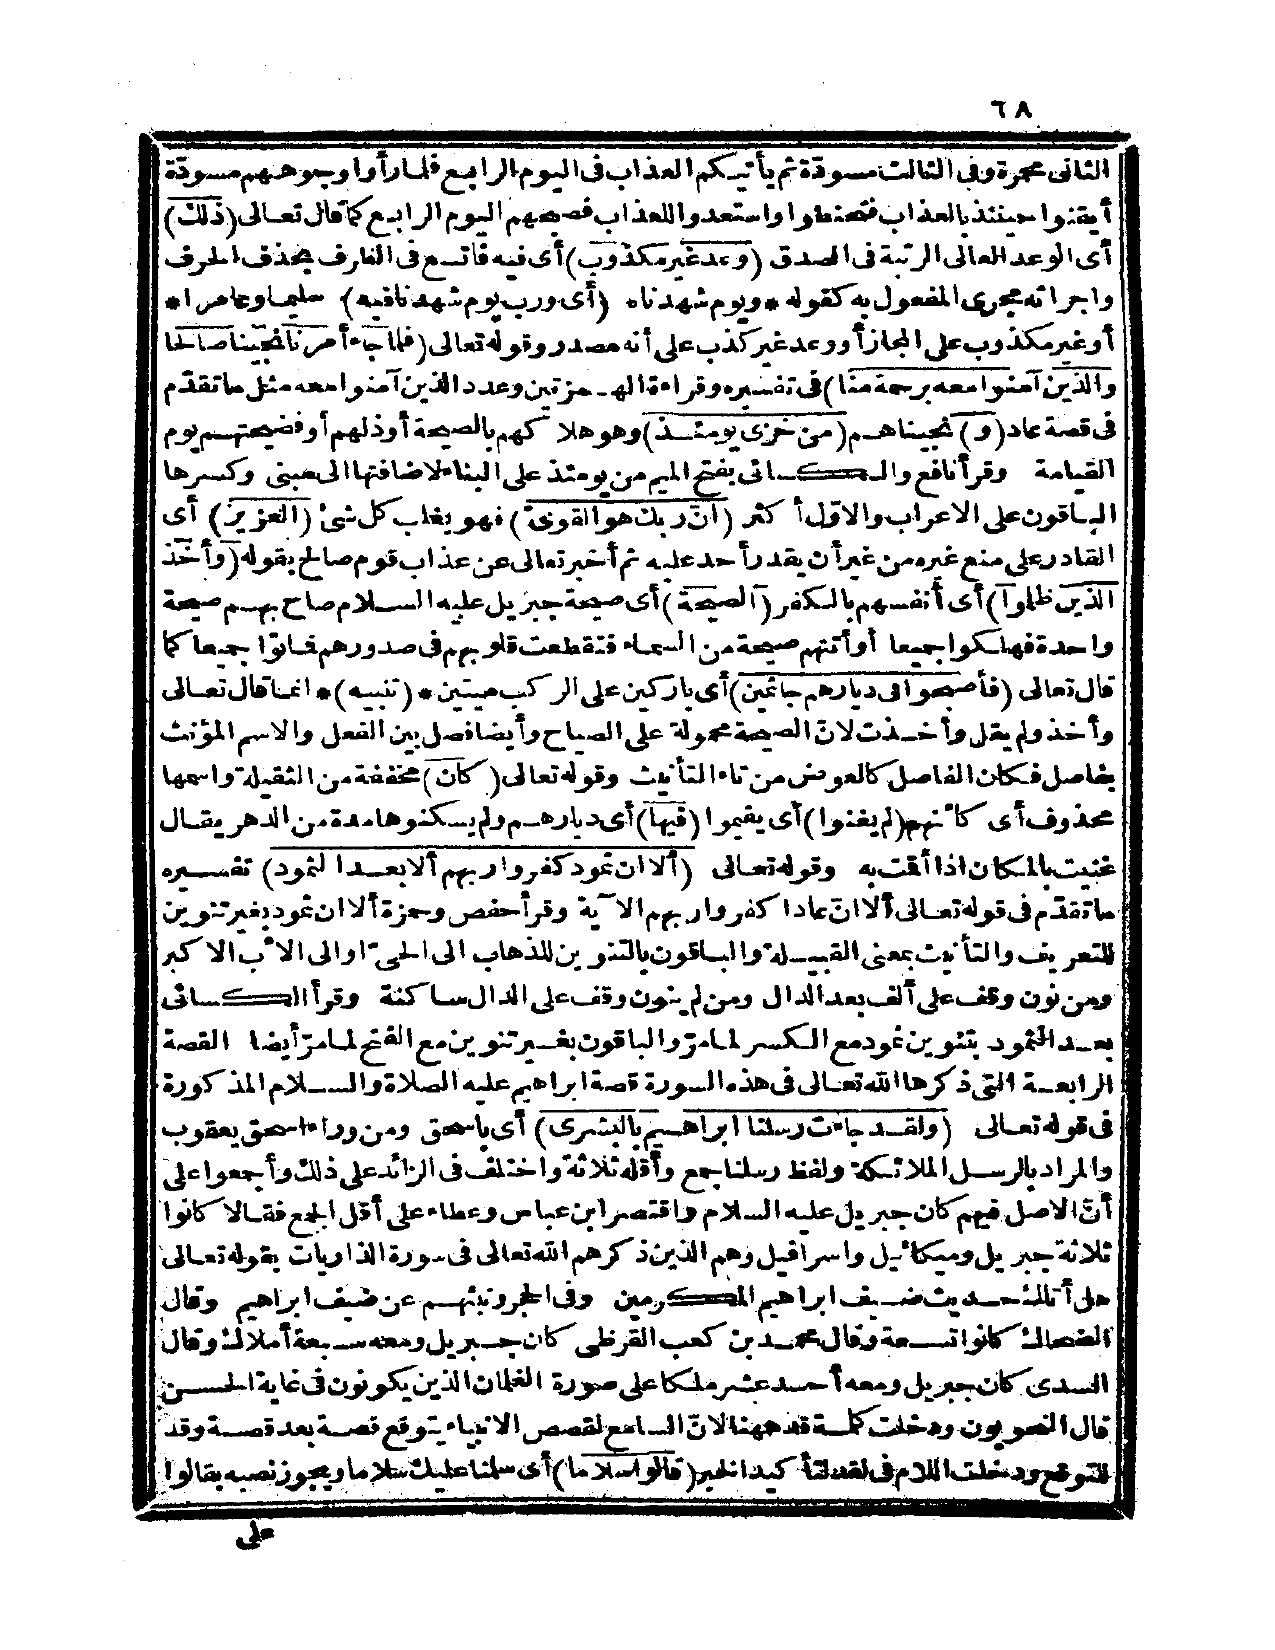 ٦٨
الثانى محمرة وفى الثالث مسودّة ثم يأتيكم العذاب فى اليوم الرابع فلما رأوا وجوههم مسودّة
أيقنوا حينئذ بالعذاب فتحنطوا واستعدوا للعذاب فصبحهم اليوم الرابع كما قال تعالى (ذلك)
أى الوعد العالى الرتبة فى الصدق (وعد غير مكذوب) أى فيه فاتسع فى الظرف بحذف الحرف
واجرائه مجرى المفعول به كقوله * ويوم شهدناه (أى ورب يوم شهدنا فيه) سليما وعامرا *
أو غير مكذوب على المجاز أو وعد غير كذب على أنه مصدر وقوله تعالى (فلما جاء أمرنا نجينا صالحا
والذين آمنوا معه برحمة منا) فى تفسيره وقراءة الهمزتين وعدد الذين آمنوا معه مثل ما تقدّم
فى قصة عاد (و) نجيناهم (من خزى يومئذ) وهو هلاكهم بالصيحة أو ذلهم أو فضيحتهم يوم
القيامة وقرأ نافع والكسائى بفتح الميم من يومئذ على البناء لاضافتها الى مبنى وكسرها
الباقون على الاعراب والاوّل أكثر (انّ ربك هو القوىّ) فهو يغلب كل شئ (العزيز) أى
القادر على منع غيره من غير أن يقدر أحد عليه ثم أخبر تعالى عن عذاب قوم صالح بقوله (وأخذ
الذين ظلموا) أى أنفسهم بالكفر (الصيحة) أى صيحة جبريل عليه السلام صاح بهم صيحة
واحدة فهلكوا جميعا أو أتتهم صيحة من السماء فتقطعت قلوبهم فى صدورهم فماتوا جميعا كما
قال تعالى (فأصبحوا فى ديارهم جاثمين) أى باركين على الركب ميتين * (تنبيه) * انما قال تعالى
وأخذ ولم يقل وأخذت لانّ الصيحة محمولة على الصياح وأيضا فصل بين الفعل والاسم المؤنث
بفاصل فكان الفاصل كالعوض من تاء التأنيث وقوله تعالى (كأن) مخففة من الثقيلة واسمها
محذوف أى كأنهم (لم يغنوا) أى يقيموا (فيها) أى ديارهم ولم يسكنوها مدة من الدهر يقال
غنيت بالمكان اذا أقمت به وقوله تعالى (ألا ان ثمود كفروا ربهم ألا بعدا لثمود) تفسيره
ما تقدّم فى قوله تعالى ألا انّ عادا كفروا ربهم الآية وقرأ حفص وحمزة ألا ان ثمود بغير تنوين
للتعريف والتأنيث بمعنى القبيلة والباقون بالتنوين للذهاب الى الحىّ أو الى الأب الاكبر
ومن نون وقف على ألف بعد الدال ومن لم ينون وقف على الدال ساكنة وقرأ الكسائى
بعد الثمود بتنوين ثمود مع الكسر لما مرّ والباقون بغير تنوين مع الفتح لما مرّ أيضا القصة
الرابعة التى ذكرها الله تعالى فى هذه السورة قصة ابراهيم عليه الصلاة والسلام المذكورة
فى قوله تعالى (ولقد جاءت رسلنا ابراهيم بالبشرى) أى باسحق ومن وراء اسحق يعقوب
والمراد بالرسل الملائكة ولفظ رسلنا جمع وأقله ثلاثة واختلف فى الزائد على ذلك وأجمعوا على
أنّ الاصل فيهم كان جبريل عليه السلام واقتصر ابن عباس وعطاء على أقل الجمع فقالا كانوا
ثلاثة جبريل وميكائيل واسرافيل وهم الذين ذكرهم الله تعالى فى سورة الذاريات بقوله تعالى
هل أتاك حديث ضيف ابراهيم المكرمين وفى الحجر ونبئهم عن ضيف ابراهيم وقال
الضحاك كانوا تسعة وقال محمد بن كعب القرظى كان جبريل ومعه سبعة أملاك وقال
السدى كان جبريل ومعه أحد عشر ملكا على صورة الغلمان الذين يكونون فى غاية الحسن
قال النحويون ودخلت كلمة قد ههنا لانّ السامع لقصص الانبياء يتوقع قصة بعد قصة وقد
للتوقع ودخلت اللام فى لقد لتأكيد الخبر (قالوا سلاما) أى سلمنا عليك سلاما ويجوز نصبه بقالوا
على